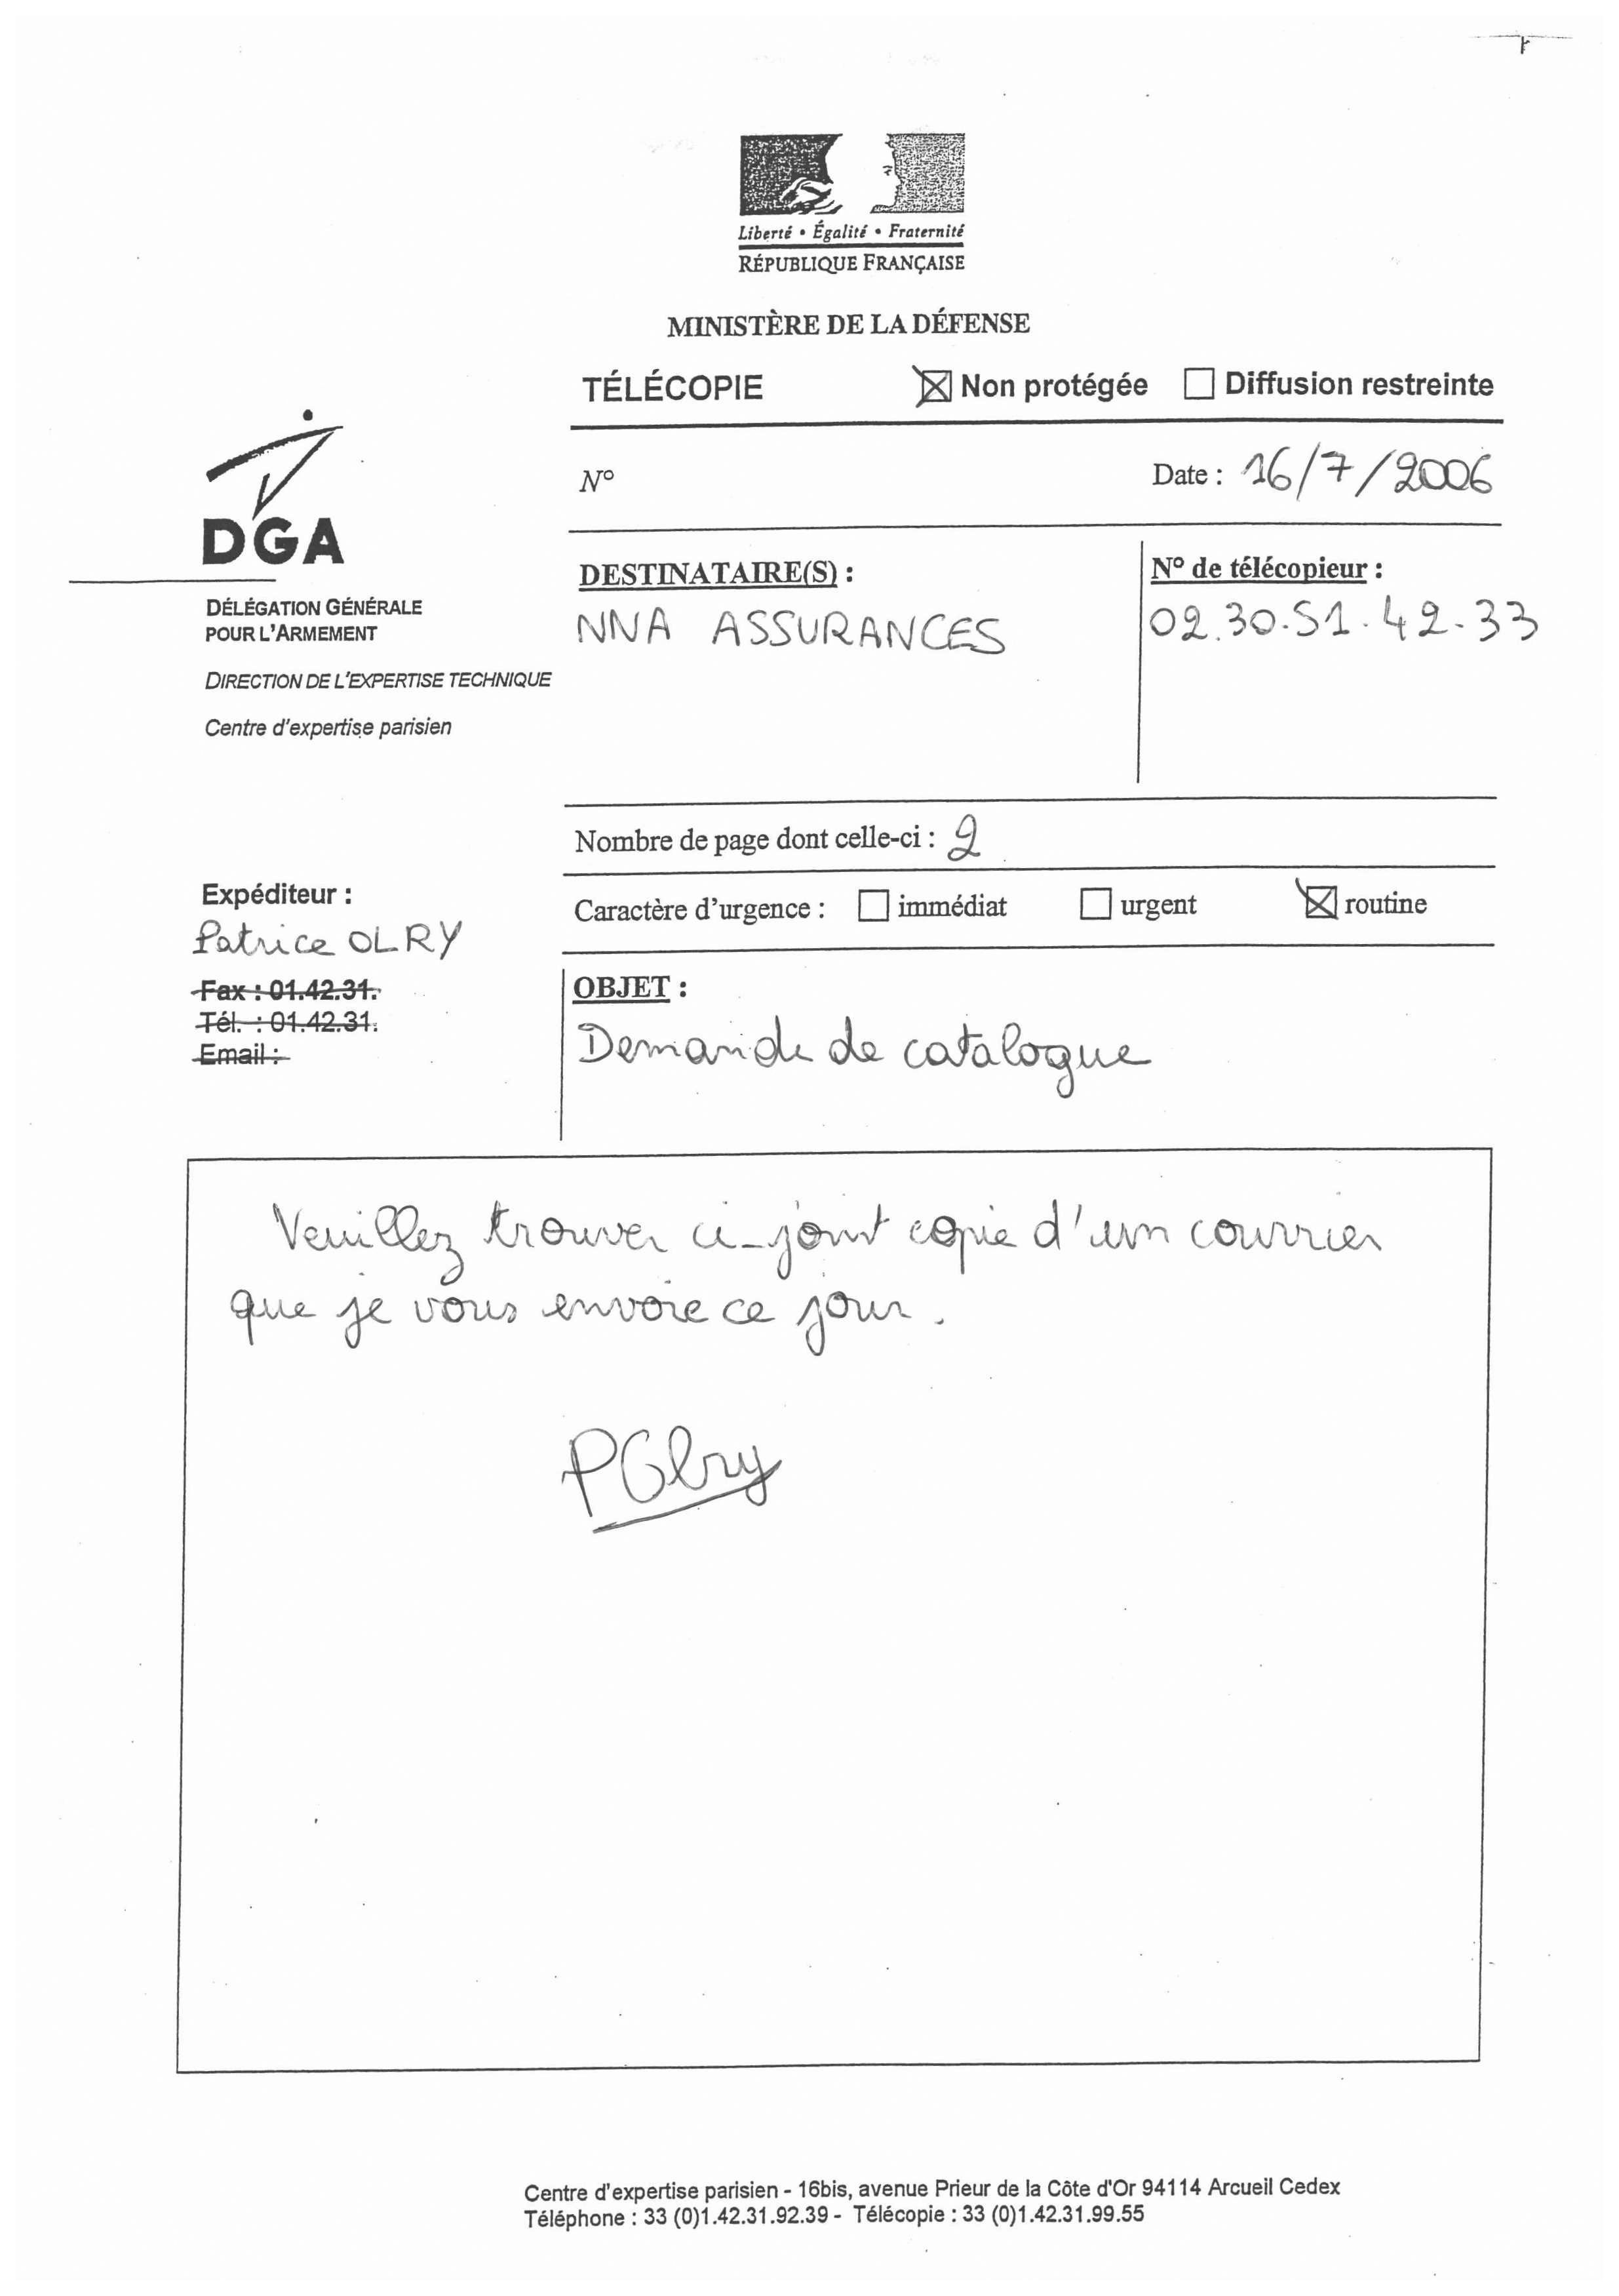 Liberté • Égalité • Fraternité
RÉPUBLIQUE FRANÇAISE
MINISTÈRE DE LA DÉFENSE
TÉLÉCOPIE Non protégée Diffusion restreinte
N° Date : 16/7/2006
DGA
DÉLÉGATION GÉNÉRALE
POUR L'ARMEMENT
DIRECTION DE L'EXPERTISE TECHNIQUE
Centre d'expertise parisien
DESTINATAIRE(S) :
NNA ASSURANCES
N° de télécopieur :
02.30.51.42.33
Nombre de page dont celle-ci : 2
Caractère d'urgence : immédiat urgent routine
Expéditeur :
Patrice OLRY
Fax : 01.42.31.
Tél. : 01.42.31.
Email :
OBJET :
Demande de catalogue
Veuillez trouver ci-joint copie d'un courrier
que je vous envoie ce jour.
POlry
Centre d'expertise parisien - 16bis, avenue Prieur de la Côte d'Or 94114 Arcueil Cedex
Téléphone : 33 (0)1.42.31.92.39 - Télécopie : 33 (0)1.42.31.99.55